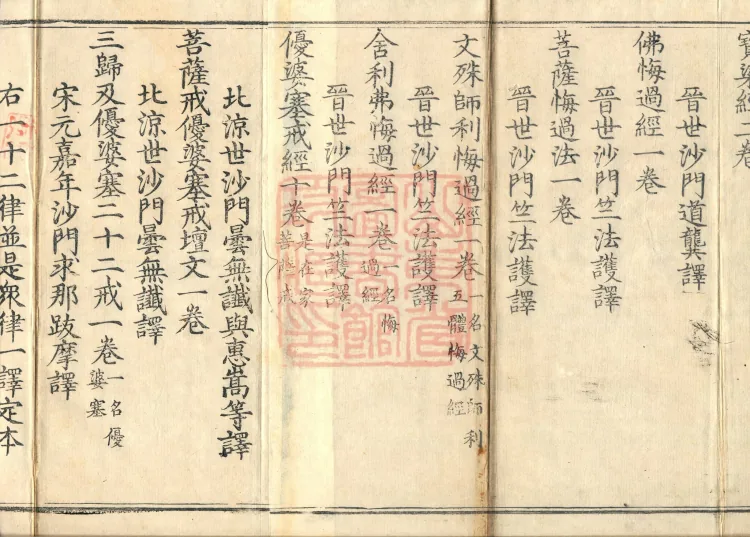 寶婆經一卷
晉世沙門道龔譯
佛悔過經一卷
晉世沙門竺法護譯
菩薩悔過法一卷
晉世沙門竺法護譯
文殊師利悔過經一卷一名文殊師利五體悔過經
晉世沙門竺法護譯
舍利弗悔過經一卷一名悔過經
晉世沙門竺法護譯
優婆塞戒經十卷是在家菩薩戒
北涼世沙門曇無讖與惠嵩等譯
菩薩戒優婆塞戒壇文一卷
北涼世沙門曇無讖譯
三歸及優婆塞二十二戒一卷一名優婆塞
宋元嘉年沙門求那跋摩譯
右一十二律並是眾律一譯定本